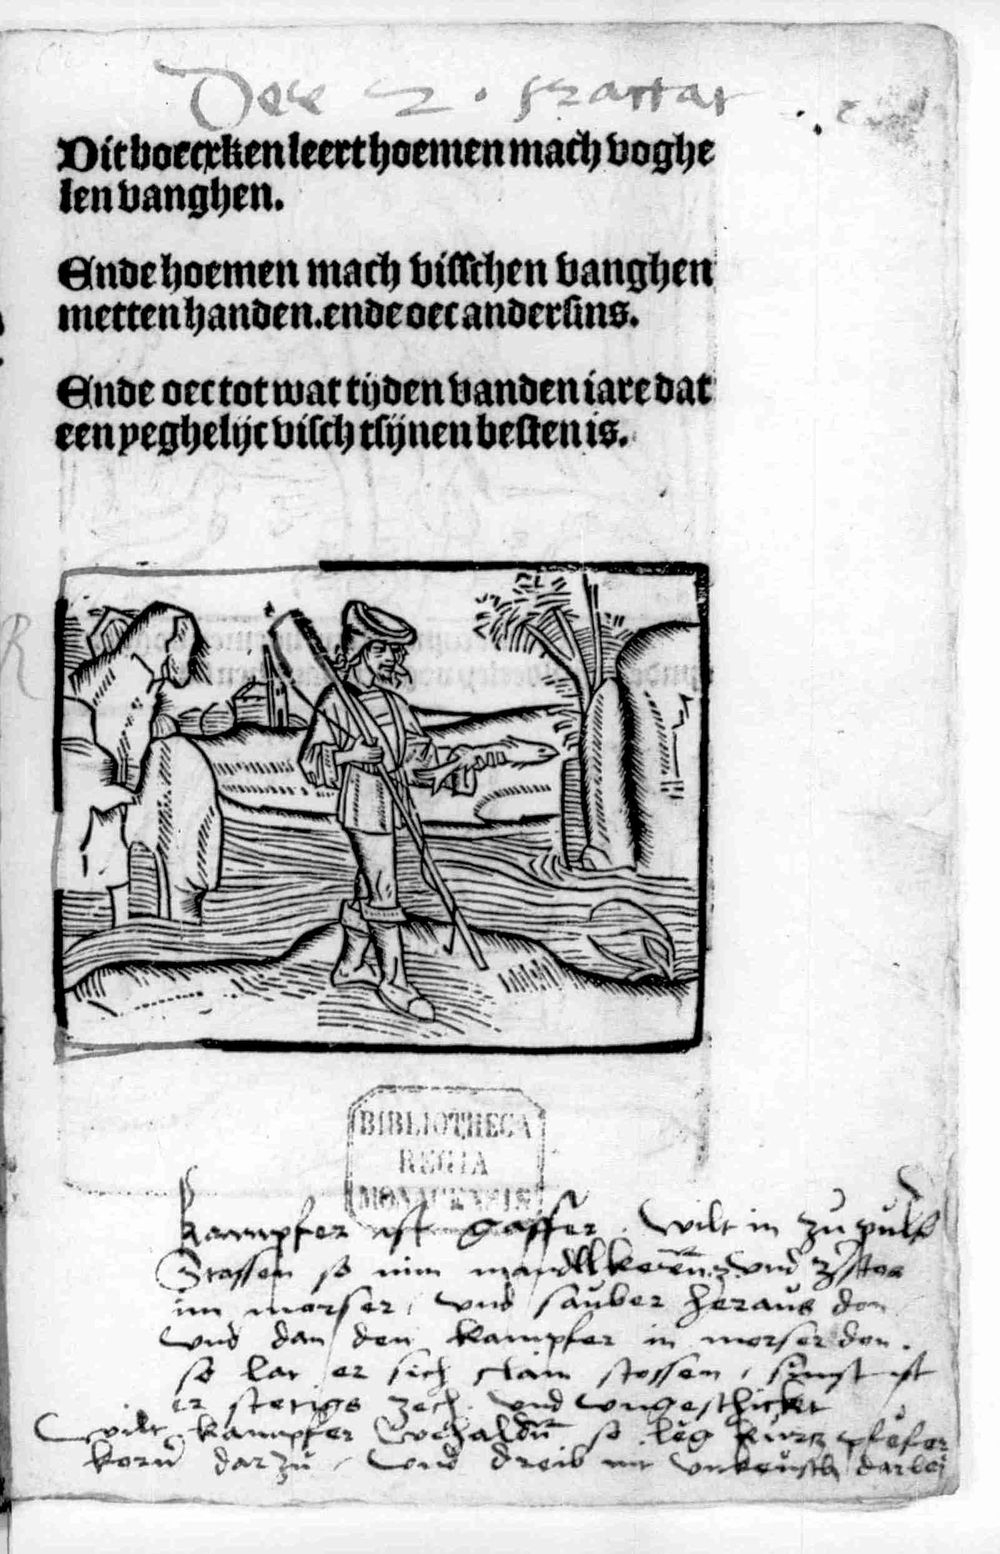 Der 2. tractat
Dit boecxken leert hoemen mach voghe
len vanghen.
Ende hoemen mach visschen vanghen
metten handen. ende oec andersins.
Ende oec tot wat tijden vanden iare dat
een yeghelijc visch tsijnen besten is.
BIBLIOTHECA
REGIA
MONACENSIS
kampfer ist gaffer. Wilt in zu pulf
Stossen so nim mandllkeren und
im morser, und sauber heraus don
und dan den kampfer in morser don.
so lat er sich stossen, sunst ist
er stetigs zech. und ungeschickt
wilt kampfer behaldn so leg pfefer
korn dar zu, und dreib nit unkeusch darbei